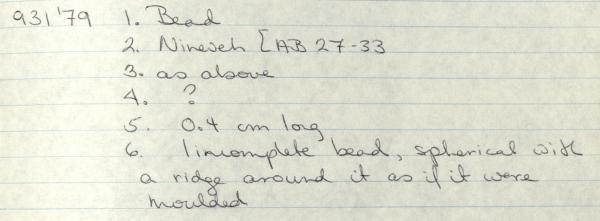 931'79 1. Bead
2. Nineveh [AB 27-33
3. as above
4. ?
5. 0.4 cm long
6. 1 incomplete bead, spherical with
a ridge around it as if it were
moulded